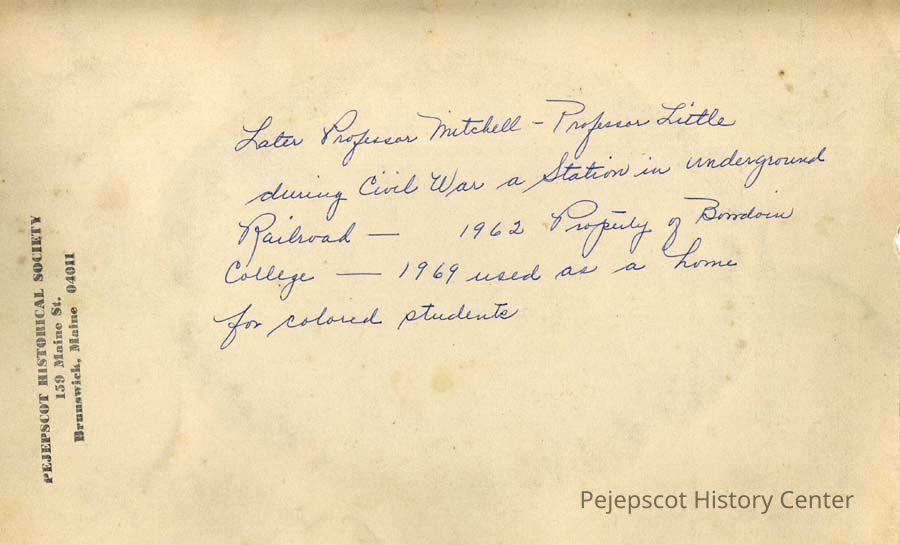 Later Professor Mitchell - Professor Little
during Civil War a Station in underground
Railroad — 1962 Property of Bowdoin
College — 1969 used as a home
for colored students
PEJEPSCOT HISTORICAL SOCIETY
159 Maine St.
Brunswick, Maine 04011
Pejepscot History Center